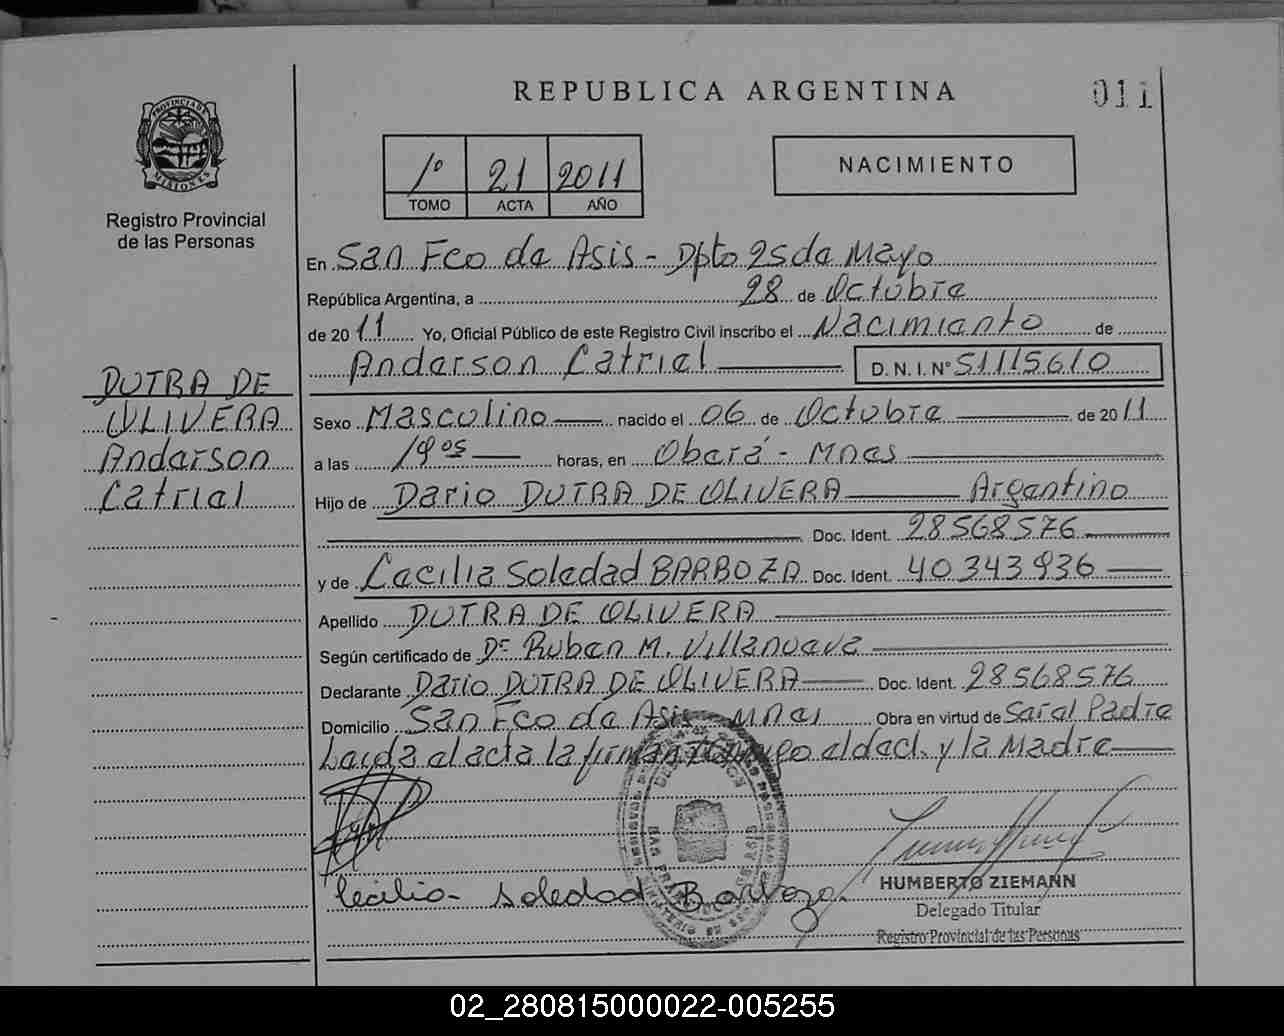 REPUBLICA ARGENTINA
011
PROVINCIA DE MISIONES
Registro Provincial
de las Personas
1º 21 2011
TOMO ACTA AÑO
NACIMIENTO
En San Fco de Asis - Dpto 25 de Mayo
República Argentina, a 28 de Octubre
de 2011 Yo, Oficial Público de este Registro Civil inscribo el Nacimiento de
Anderson Catriel D. N. I. Nº 51115610
DUTRA DE
OLIVERA
Anderson
Catriel
Sexo Masculino nacido el 06 de Octubre de 2011
a las horas, en Oberá - Mnes
Hijo de Dario DUTRA DE OLIVERA Argentino
Doc. Ident. 28568576
y de Cecilia Soledad BARBOZA Doc. Ident. 40343936
Apellido DUTRA DE OLIVERA
Según certificado de Dr Ruben M. Villanueva
Declarante Dario DUTRA DE OLIVERA Doc. Ident. 28568576
Domicilio San Fco de Asis Mnes Obra en virtud de Ser el Padre
Leida el acta la firman conmigo el decl. y la Madre
Cecilia Soledad Barboza
HUMBERTO ZIEMANN
Delegado Titular
Registro Provincial de las Personas
02_280815000022-005255